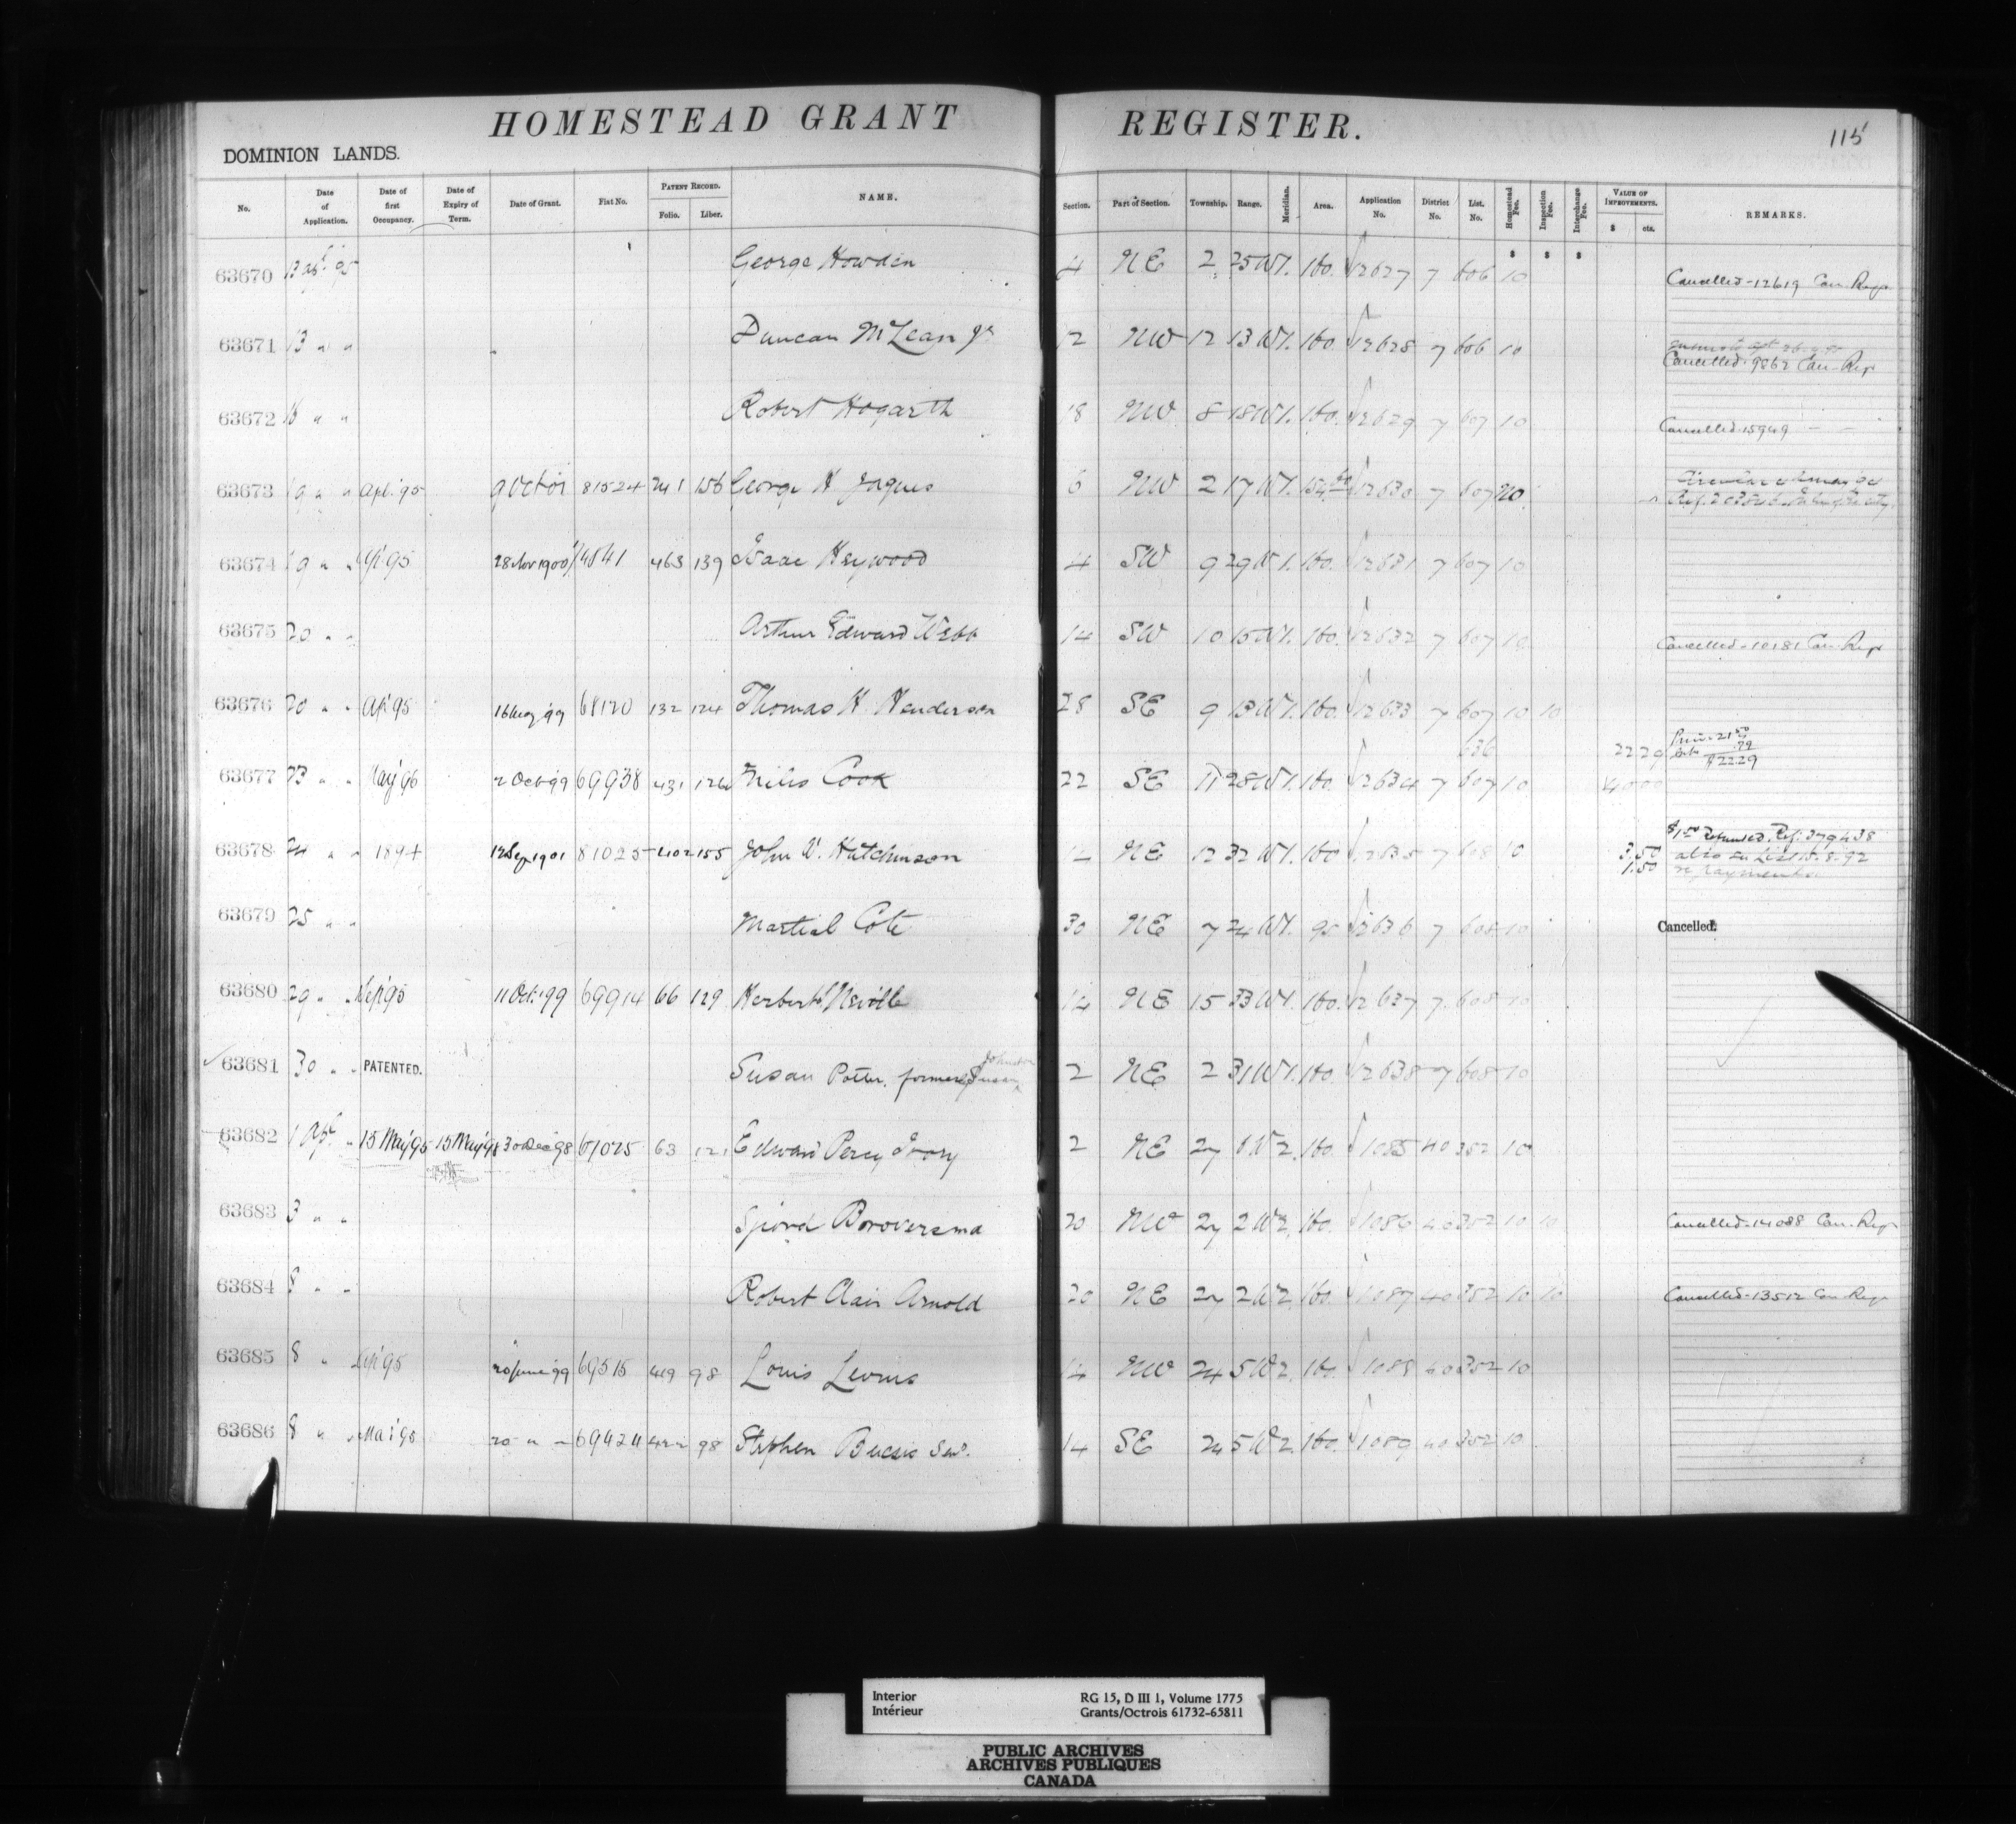 HOMESTEAD GRANT REGISTER.
115
DOMINION LANDS.
No. Date of Application. Date of first Occupancy. Date of Expiry of Term. Date of Grant. Fiat No. PATENT RECORD. Folio. Liber. NAME. Section. Part of Section. Township. Range. Meridian. Area. Application No. District No. List. No. Homestead Fee. Inspection Fee. Interchange Fee. VALUE OF IMPROVEMENTS. $ cts. REMARKS.
$ $ $
63670 George Howden 4 NE 2 25 W1. 160. 12627 7 606 10 Cancelled-12619 Can. Regr
63671 13 " " Duncan McLean Jr 12 NW 12 13 W1. 160. 12628 7 606 10
Cancelled. 9862 Can. Regr
63672 " " Robert Hogarth 18 NW 8 18 W1. 160. 12629 7 607 10 Cancelled. 15949 " "
63673 19 " " Apl. '95 9 Oct 01 81524 241 156 George H Jaques 6 NW 2 17 W1. 12630 7 607 10
63674 19 " " 28 Nov 1900 74841 463 139 Isaac Heywood 4 SW 9 29 W1. 160. 12631 7 607 10
63675 20 " " Arthur Edward Webb 14 SW 10 15 W1. 160. 12632 7 607 10 Cancelled-10181 Can. Regr
63676 20 " " Ap '95 16 Aug '99 68120 132 124 Thomas H Henderson 28 SE 9 13 W1. 160. 12633 7 607 10 10
636 22 29 $22.29
63677 23 " " May '96 2 Oct '99 69938 431 126 Miles Cook 22 SE 11 28 W1. 160. 12634 7 607 10
63678 24 " " 1894 12 Sep 1901 81025 402 155 John W. Hutchinson 12 NE 12 32 W1. 160 12635 7 608 10 3.50 1.50 $1.50 Refunded. Ref: 379438
63679 25 " " Martial Cote 30 NE 7 24 W1. 95 12636 7 608 10 Cancelled.
63680 29 " " Sep '95 11 Oct. '99 69914 66 129 Herbert Neville 14 NE 15 33 W1. 160. 12637 7 608 10
63681 30 " " PATENTED. Susan Potter, formerly Susan Johnston 2 NE 2 31 W1. 160. 12638 7 608 10
63682 1 Apl. " 15 May '95 15 May '98 30 Dec '98 61025 63 121 Edward Percy Ivory 2 NE 27 1 W2. 160. 1085 40 352 10
63683 3 " " Sjoerd Boroversma 20 NW 27 2 W2. 160. 1086 40 352 10 10 Cancelled-14088 Can. Regr
63684 8 " " Robert Clair Arnold 20 NE 27 2 W2. 160. 1087 40 352 10 10 Cancelled-13512 Can. Regr
63685 8 " 20 June '99 69515 419 98 Louis 14 NW 24 5 W2. 160. 1088 40 352 10
63686 8 " " Mar '95 20 " " 69424 422 98 Stephen Senr. 14 SE 24 5 W2. 160. 1089 40 352 10
Interior
Intérieur
RG 15, D III 1, Volume 1775
Grants/Octrois 61732-65811
PUBLIC ARCHIVES
ARCHIVES PUBLIQUES
CANADA